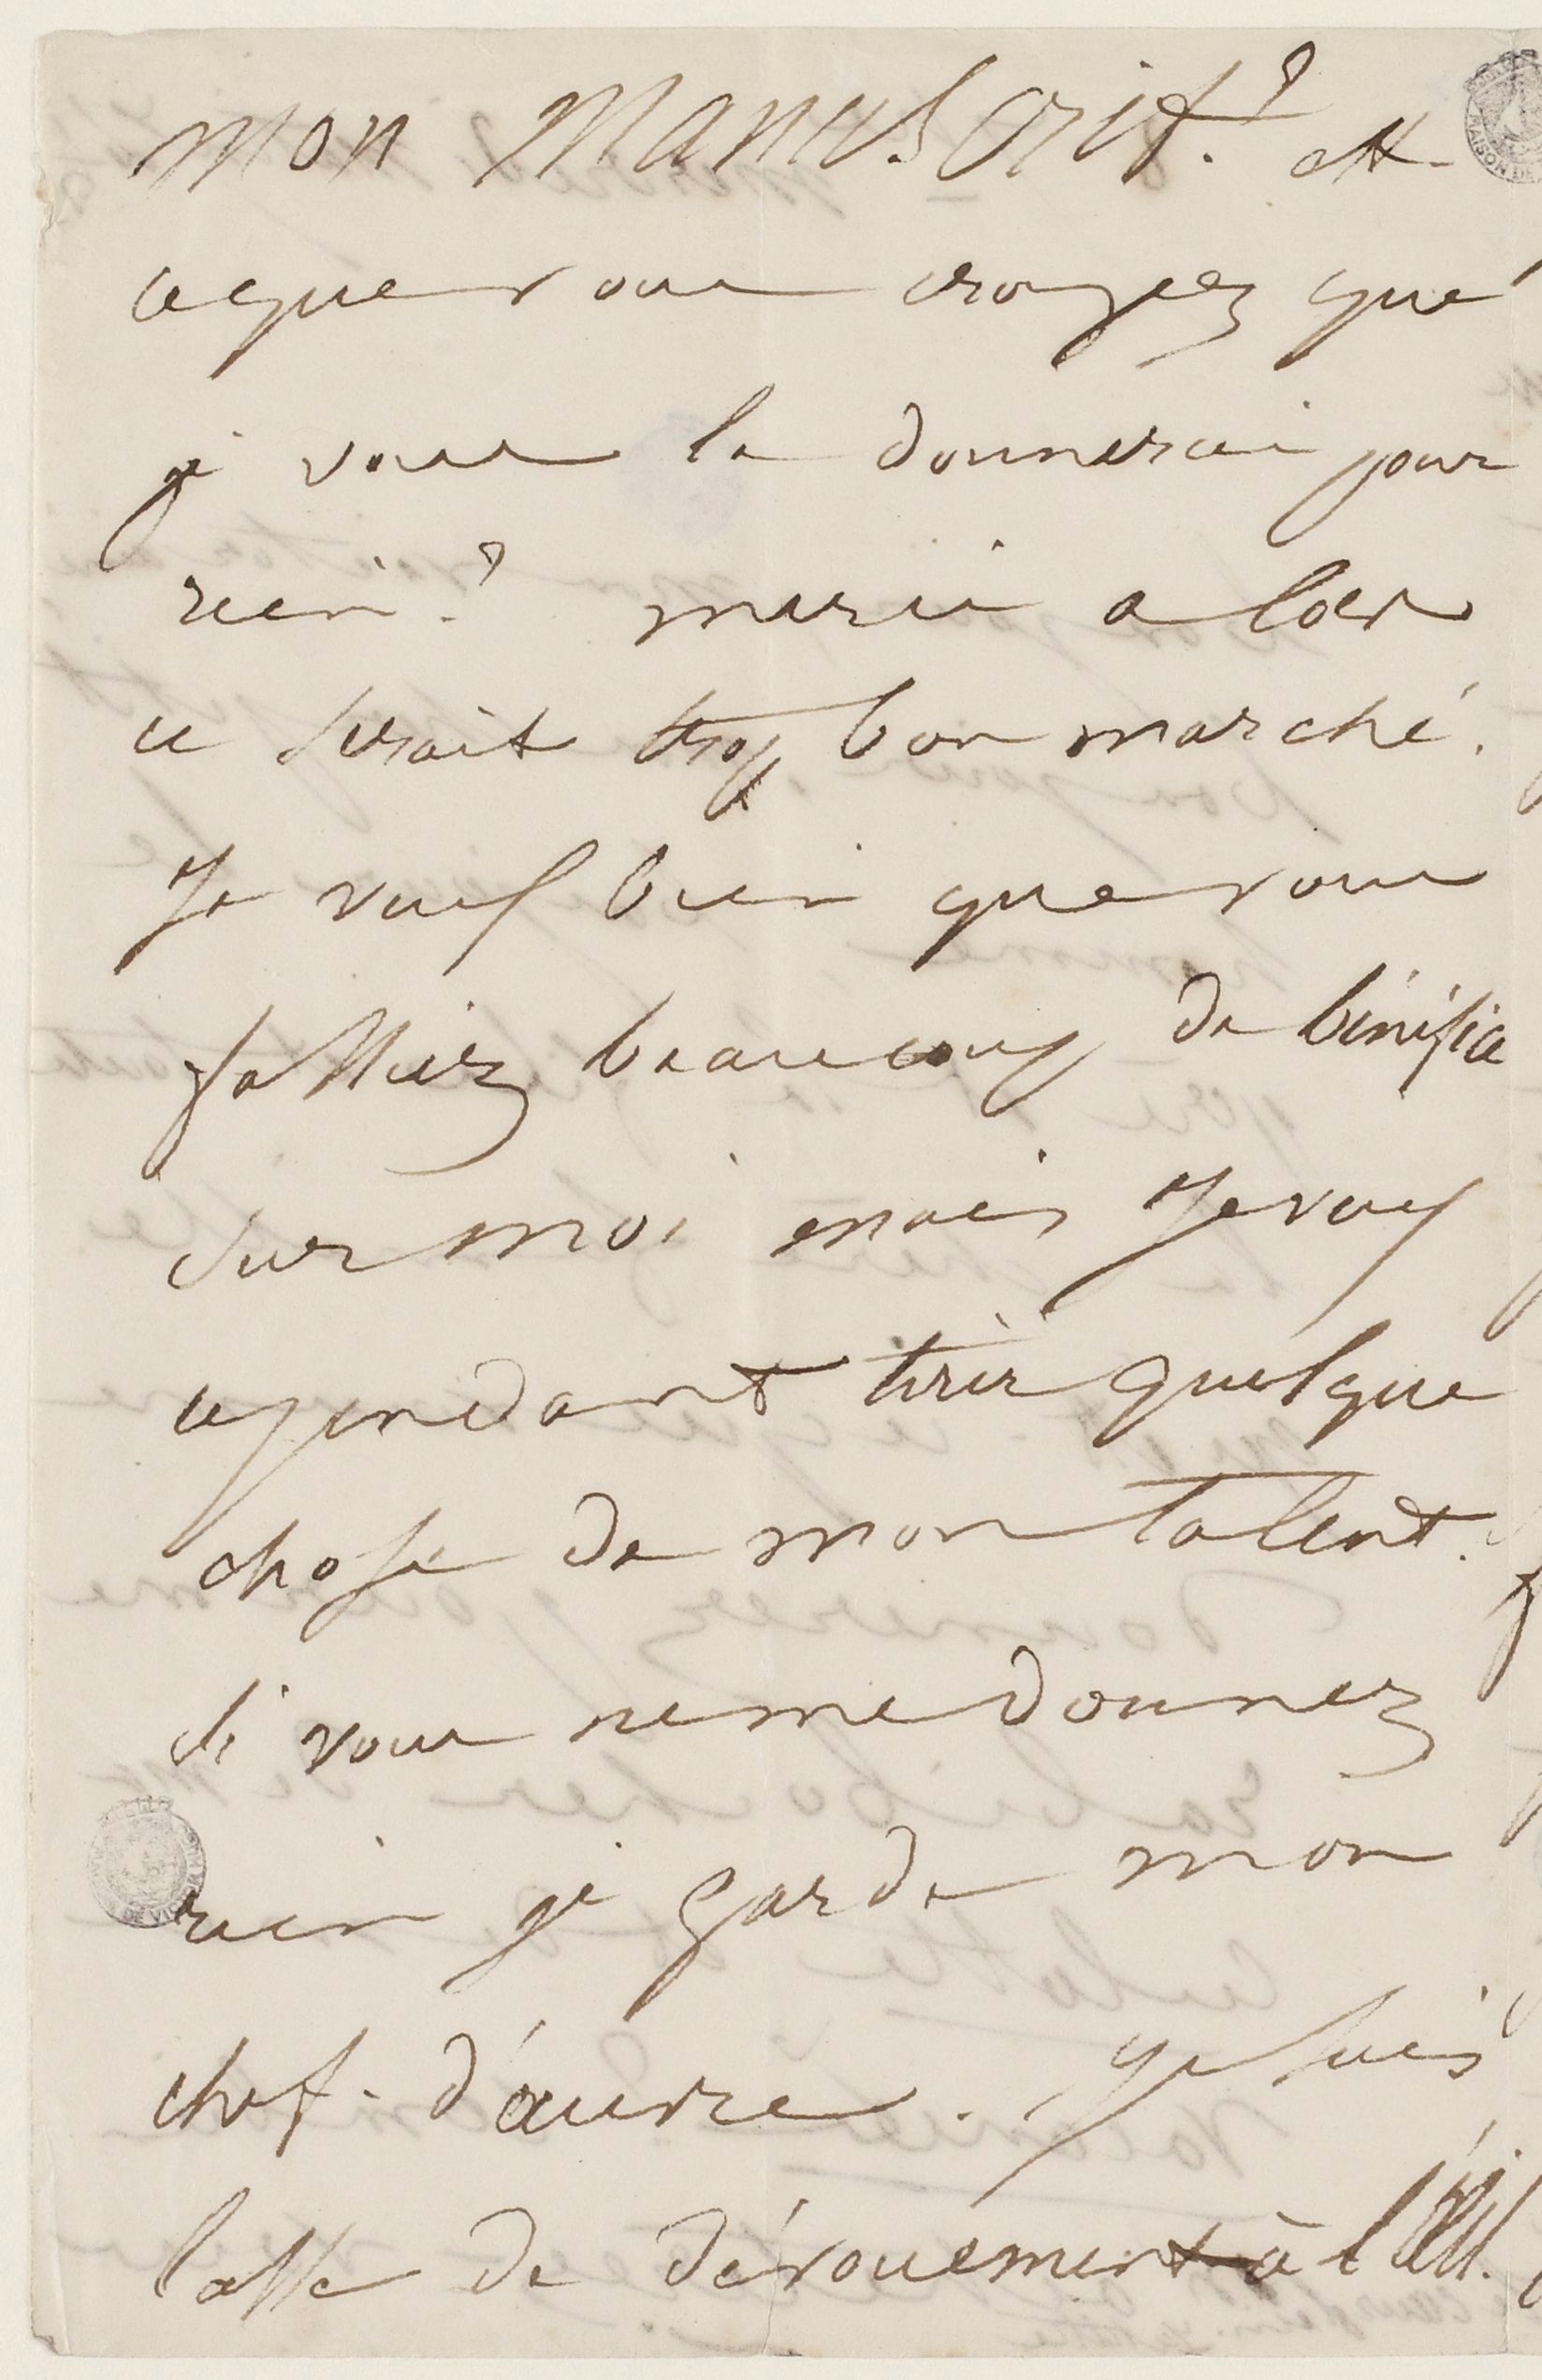 mon Manuscrit ? est
ce que vous croyez que
je vous le donnerai pour
rien ? merci alors
ce serait trop bon marché.
Je veux bien que vous
fassiez beaucoup de bénéfice
sur moi mais Je veux
cependant tirer quelque
chose de mon talent.
Si vous ne me donnez
rien je garde mon
chef-d'œuvre. Je suis
lasse de dévouement à l'œil.